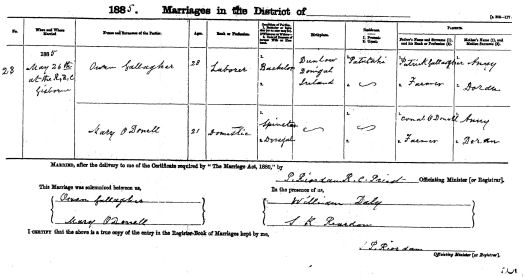 1885. Marriages in the District of
No. When and Where Married. Names and Surnames of the Parties. Ages. Rank or Profession. Birthplace. Residence. 1. Present. 2. Usual. Parents.
Father's Name and Surname (1), and his Rank or Profession (2). Mother's Name (1), and Maiden Surname (2).
28
1885
May 26th
at the R.C.
Gisborne
Owen Gallagher 28 Laborer Bachelor
Donegal
Ireland
Patutahi
Patrick Gallagher
Farmer
Mary O'Donell 21 Domestic Spinster
Donegal
Conal O'Donell
Farmer
Doran
MARRIED, after the delivery to me of the Certificate required by "The Marriage Act, 1880," by
P. Riordan R. C. Priest Officiating Minister [or Registrar].
This Marriage was solemnized between us,
Owen Gallagher
Mary O'Donell
In the presence of us,
William Daly
S K Reardon
I CERTIFY that the above is a true copy of the entry in the Register-Book of Marriages kept by me,
P. Riordan
Officiating Minister [or Registrar].